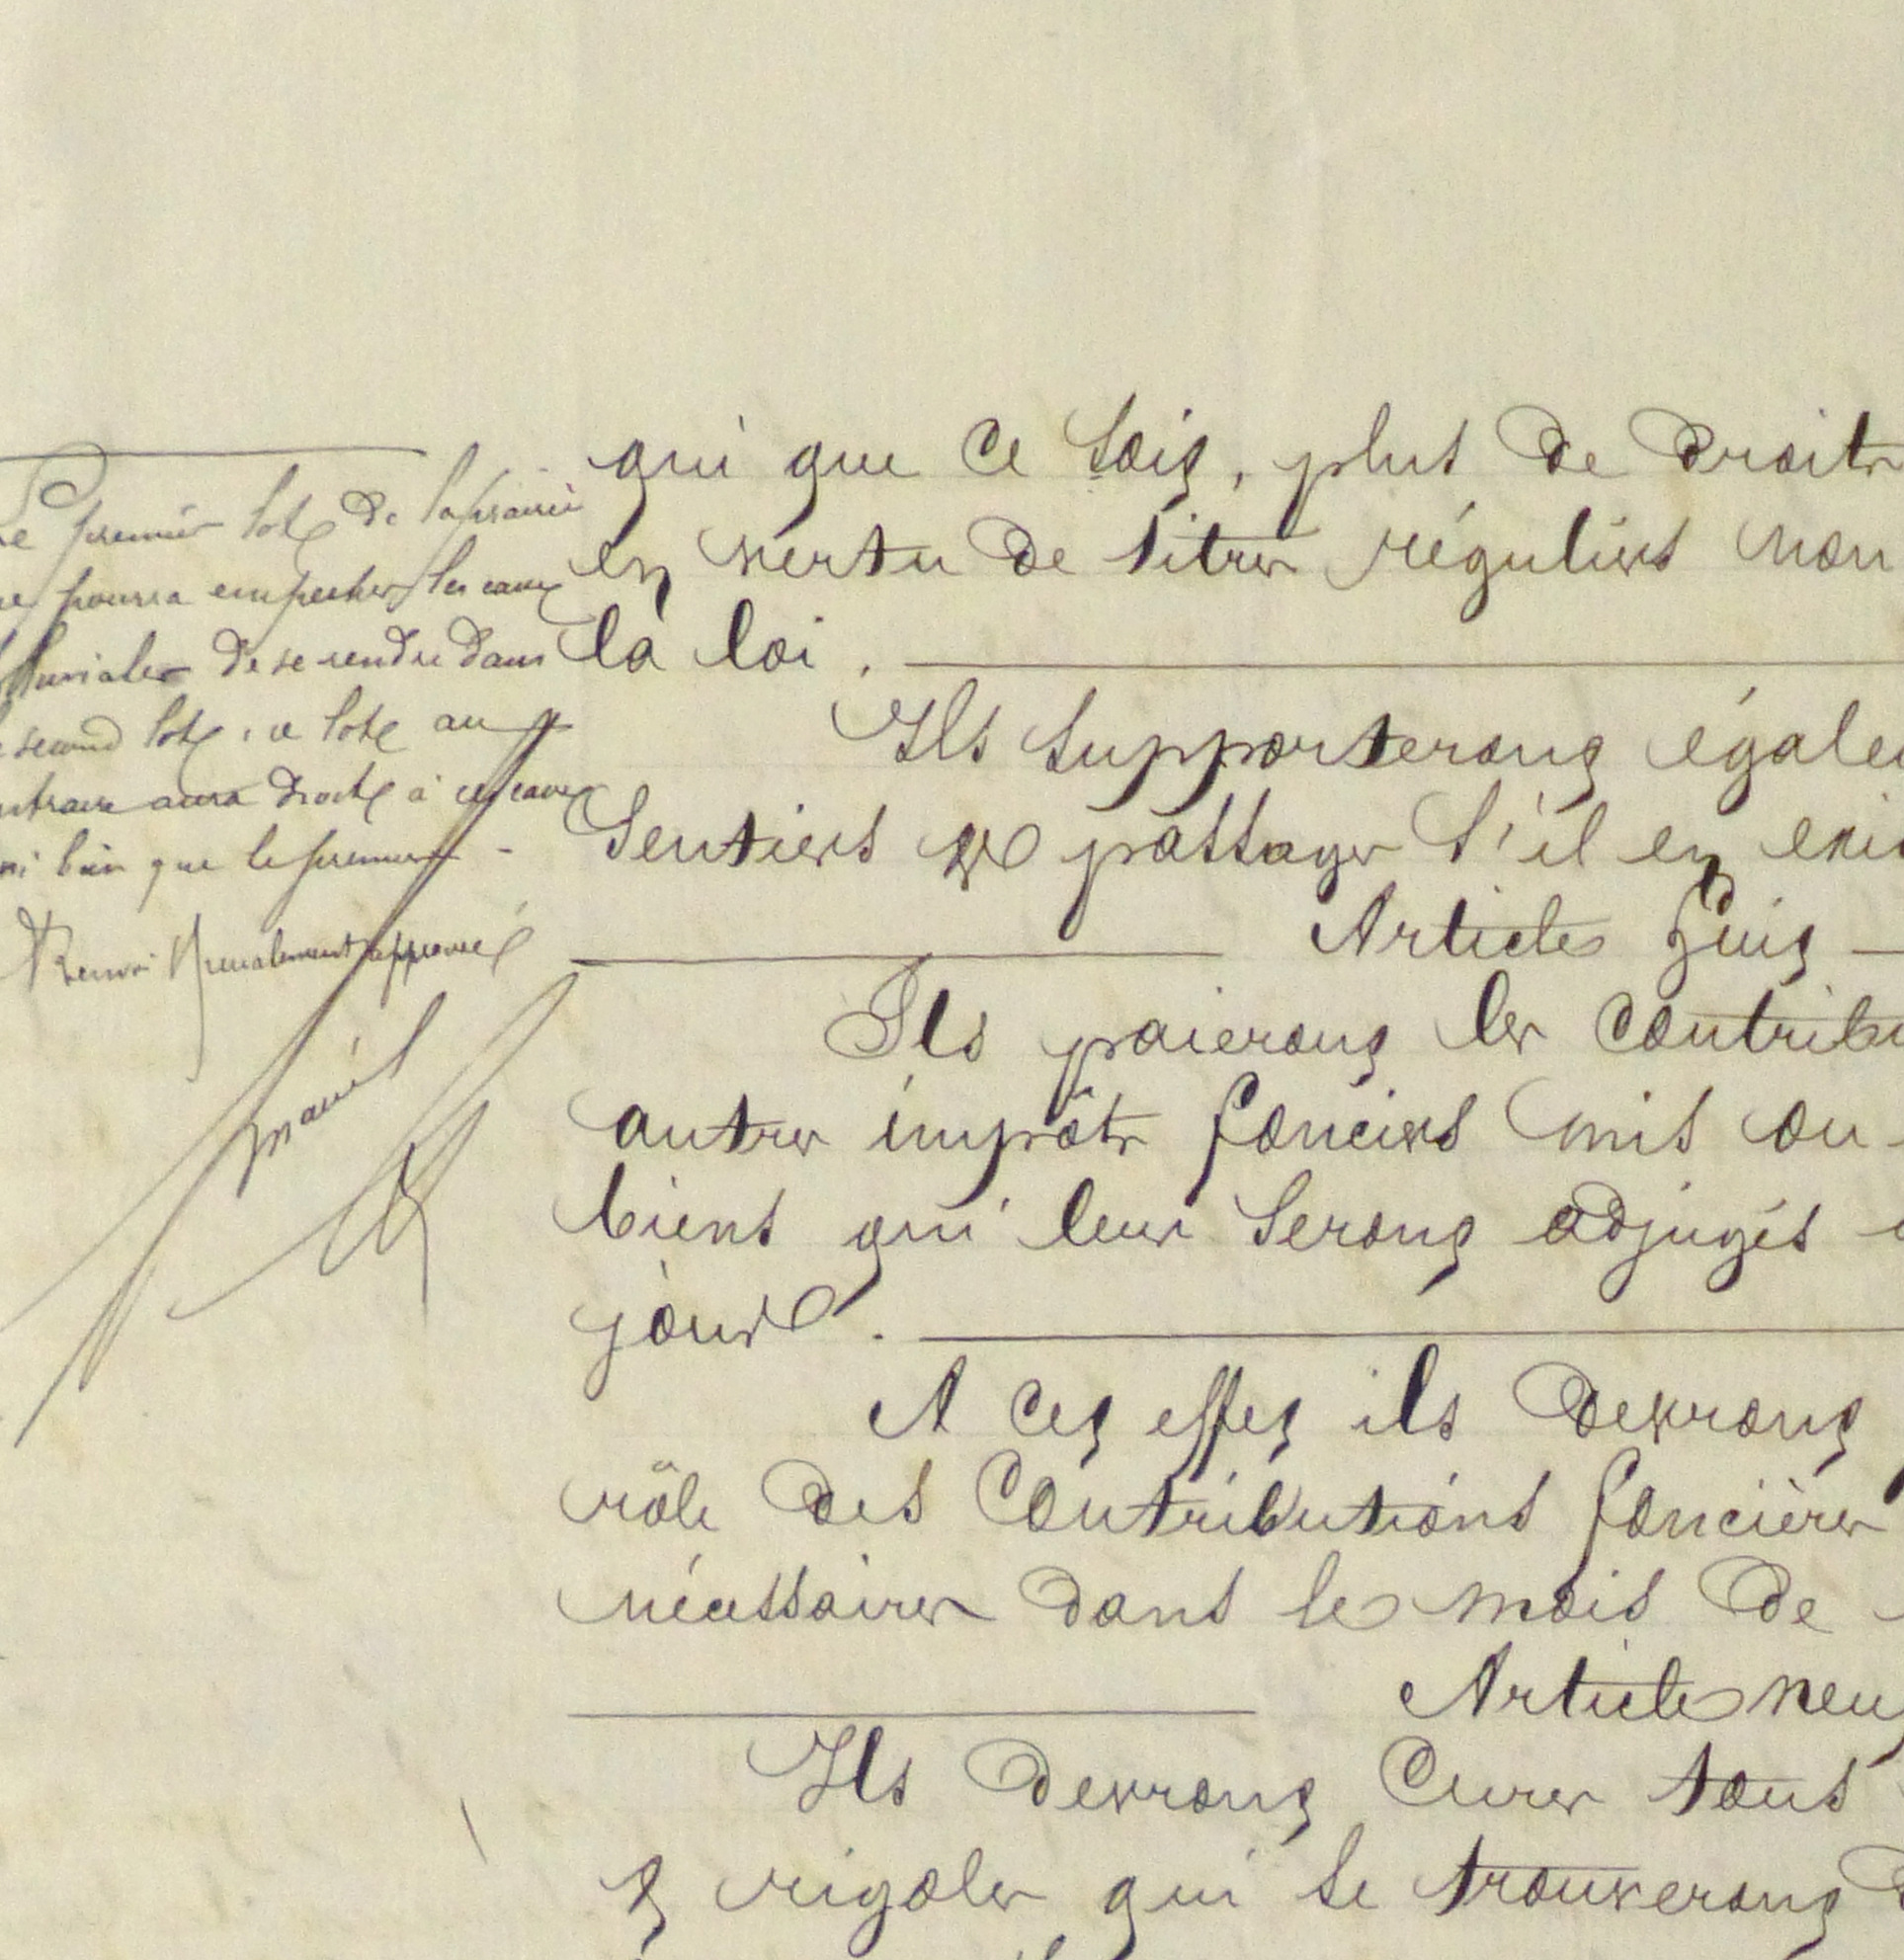 Le premier lot de la prairie
ne pourra empecher les eaux
pluviales de se rendre dans
le second lot, ce lot au
contraire aura droit à ces eaux
aussi bien que le premier -
Renvoi approuvé
qui que ce soit, plus de droits
en vertu de titres réguliers non
la loi.
Ils supporteront égale
sentiers et passages s'il en exis
Article huit
Ils paieront les contribu
autres impôts fonciers mis ou
biens qui leur seront adjugés
jour.
A cet effet ils devront
rôle des contributions foncières
nécessaires dans le mois de
Article neuf
Ils devront curer tous
et rigoles qui se trouveront